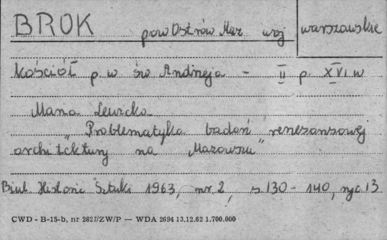 BROK pow Ostrów Maz woj warszawskie
Kościół p.w św Andrzeja - II p. XVI w
Maria Lewicka
"Problematyka badań renesansowej
architektury na Mazowszu"
Biul. Historii Sztuki 1963, nr. 2, s. 130 - 140, ryc. 13.
CWD - B-15-b, nr 2827/ZW/P — WDA 2694 13.12.62 1.700.000